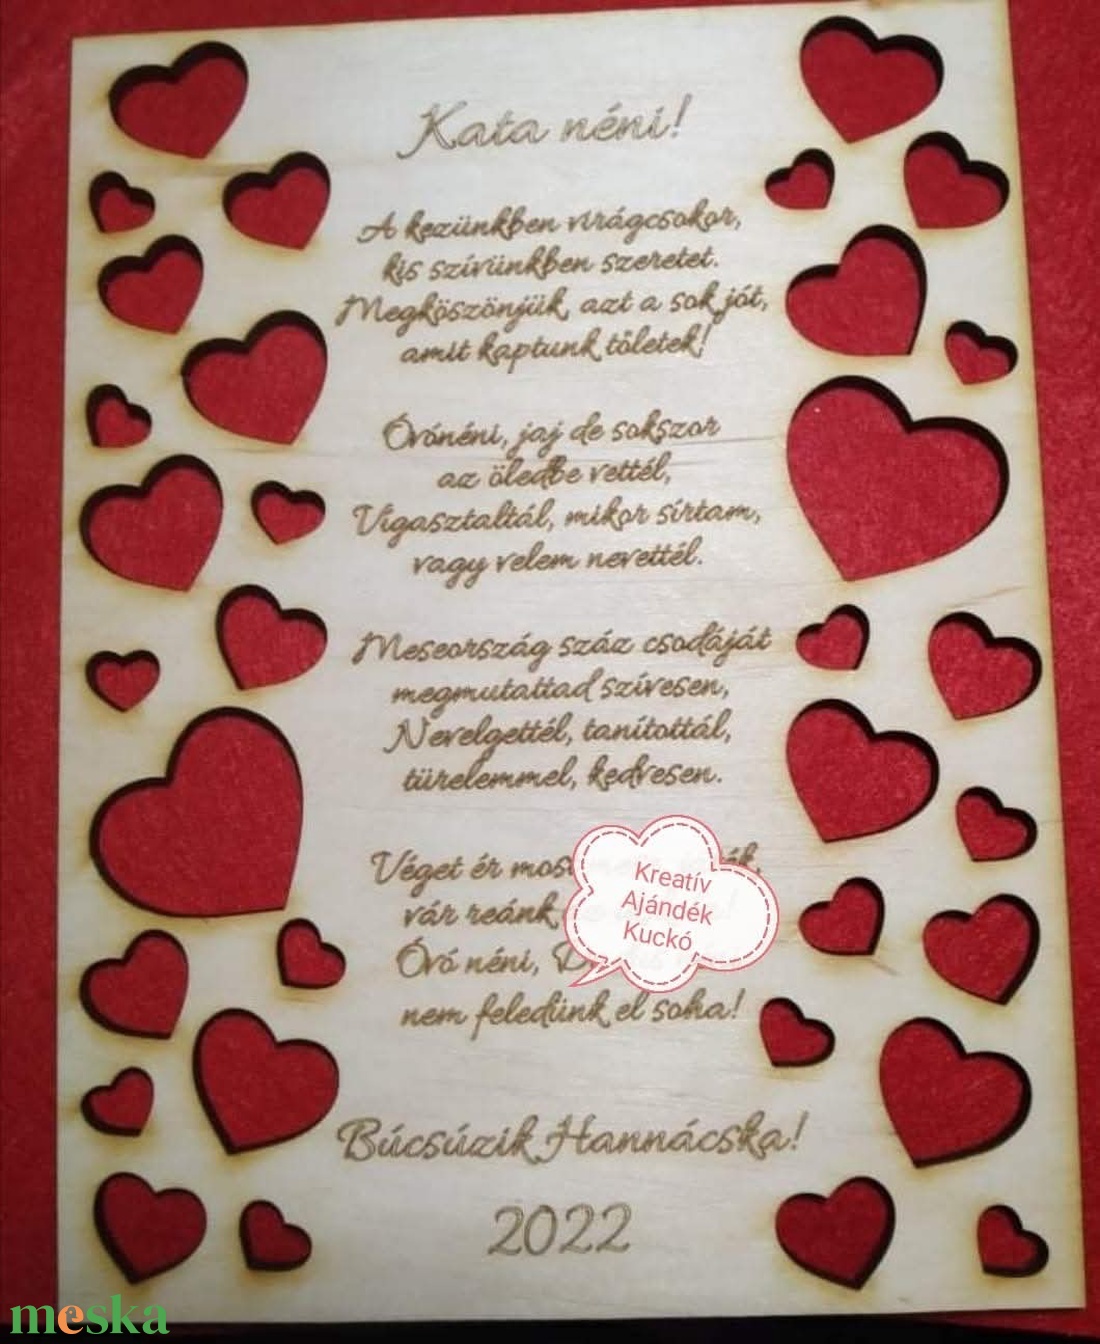 Kata néni!
A kezünkben virágcsokor,
kis szívünkben szeretet.
Megköszönjük azt a sok jót,
amit kaptunk tőletek!
Óvónéni, jaj de sokszor
az öledbe vettél,
Vigasztaltál, mikor sírtam,
vagy velem nevettél.
Meseország száz csodáját
megmutattad szívesen,
Nevelgettél, tanítottál,
türelemmel, kedvesen.
Véget ér most
vár reánk
Óvó néni,
nem feledünk el soha!
Kreatív
Ajándék
Kuckó
Búcsúzik Hannácska!
2022
meska